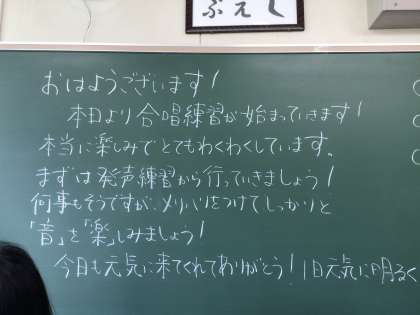 ぶえし
おはようございます!
本日より合唱練習が始まっていきます!
本当に楽しみでとてもわくわくしています。
まずは発声練習から行っていきましょう!
何事もそうですが、メリハリをつけてしっかりと
「音」を「楽」しみましょう!
今日も元気に来てくれてありがとう!1日元気に明るく